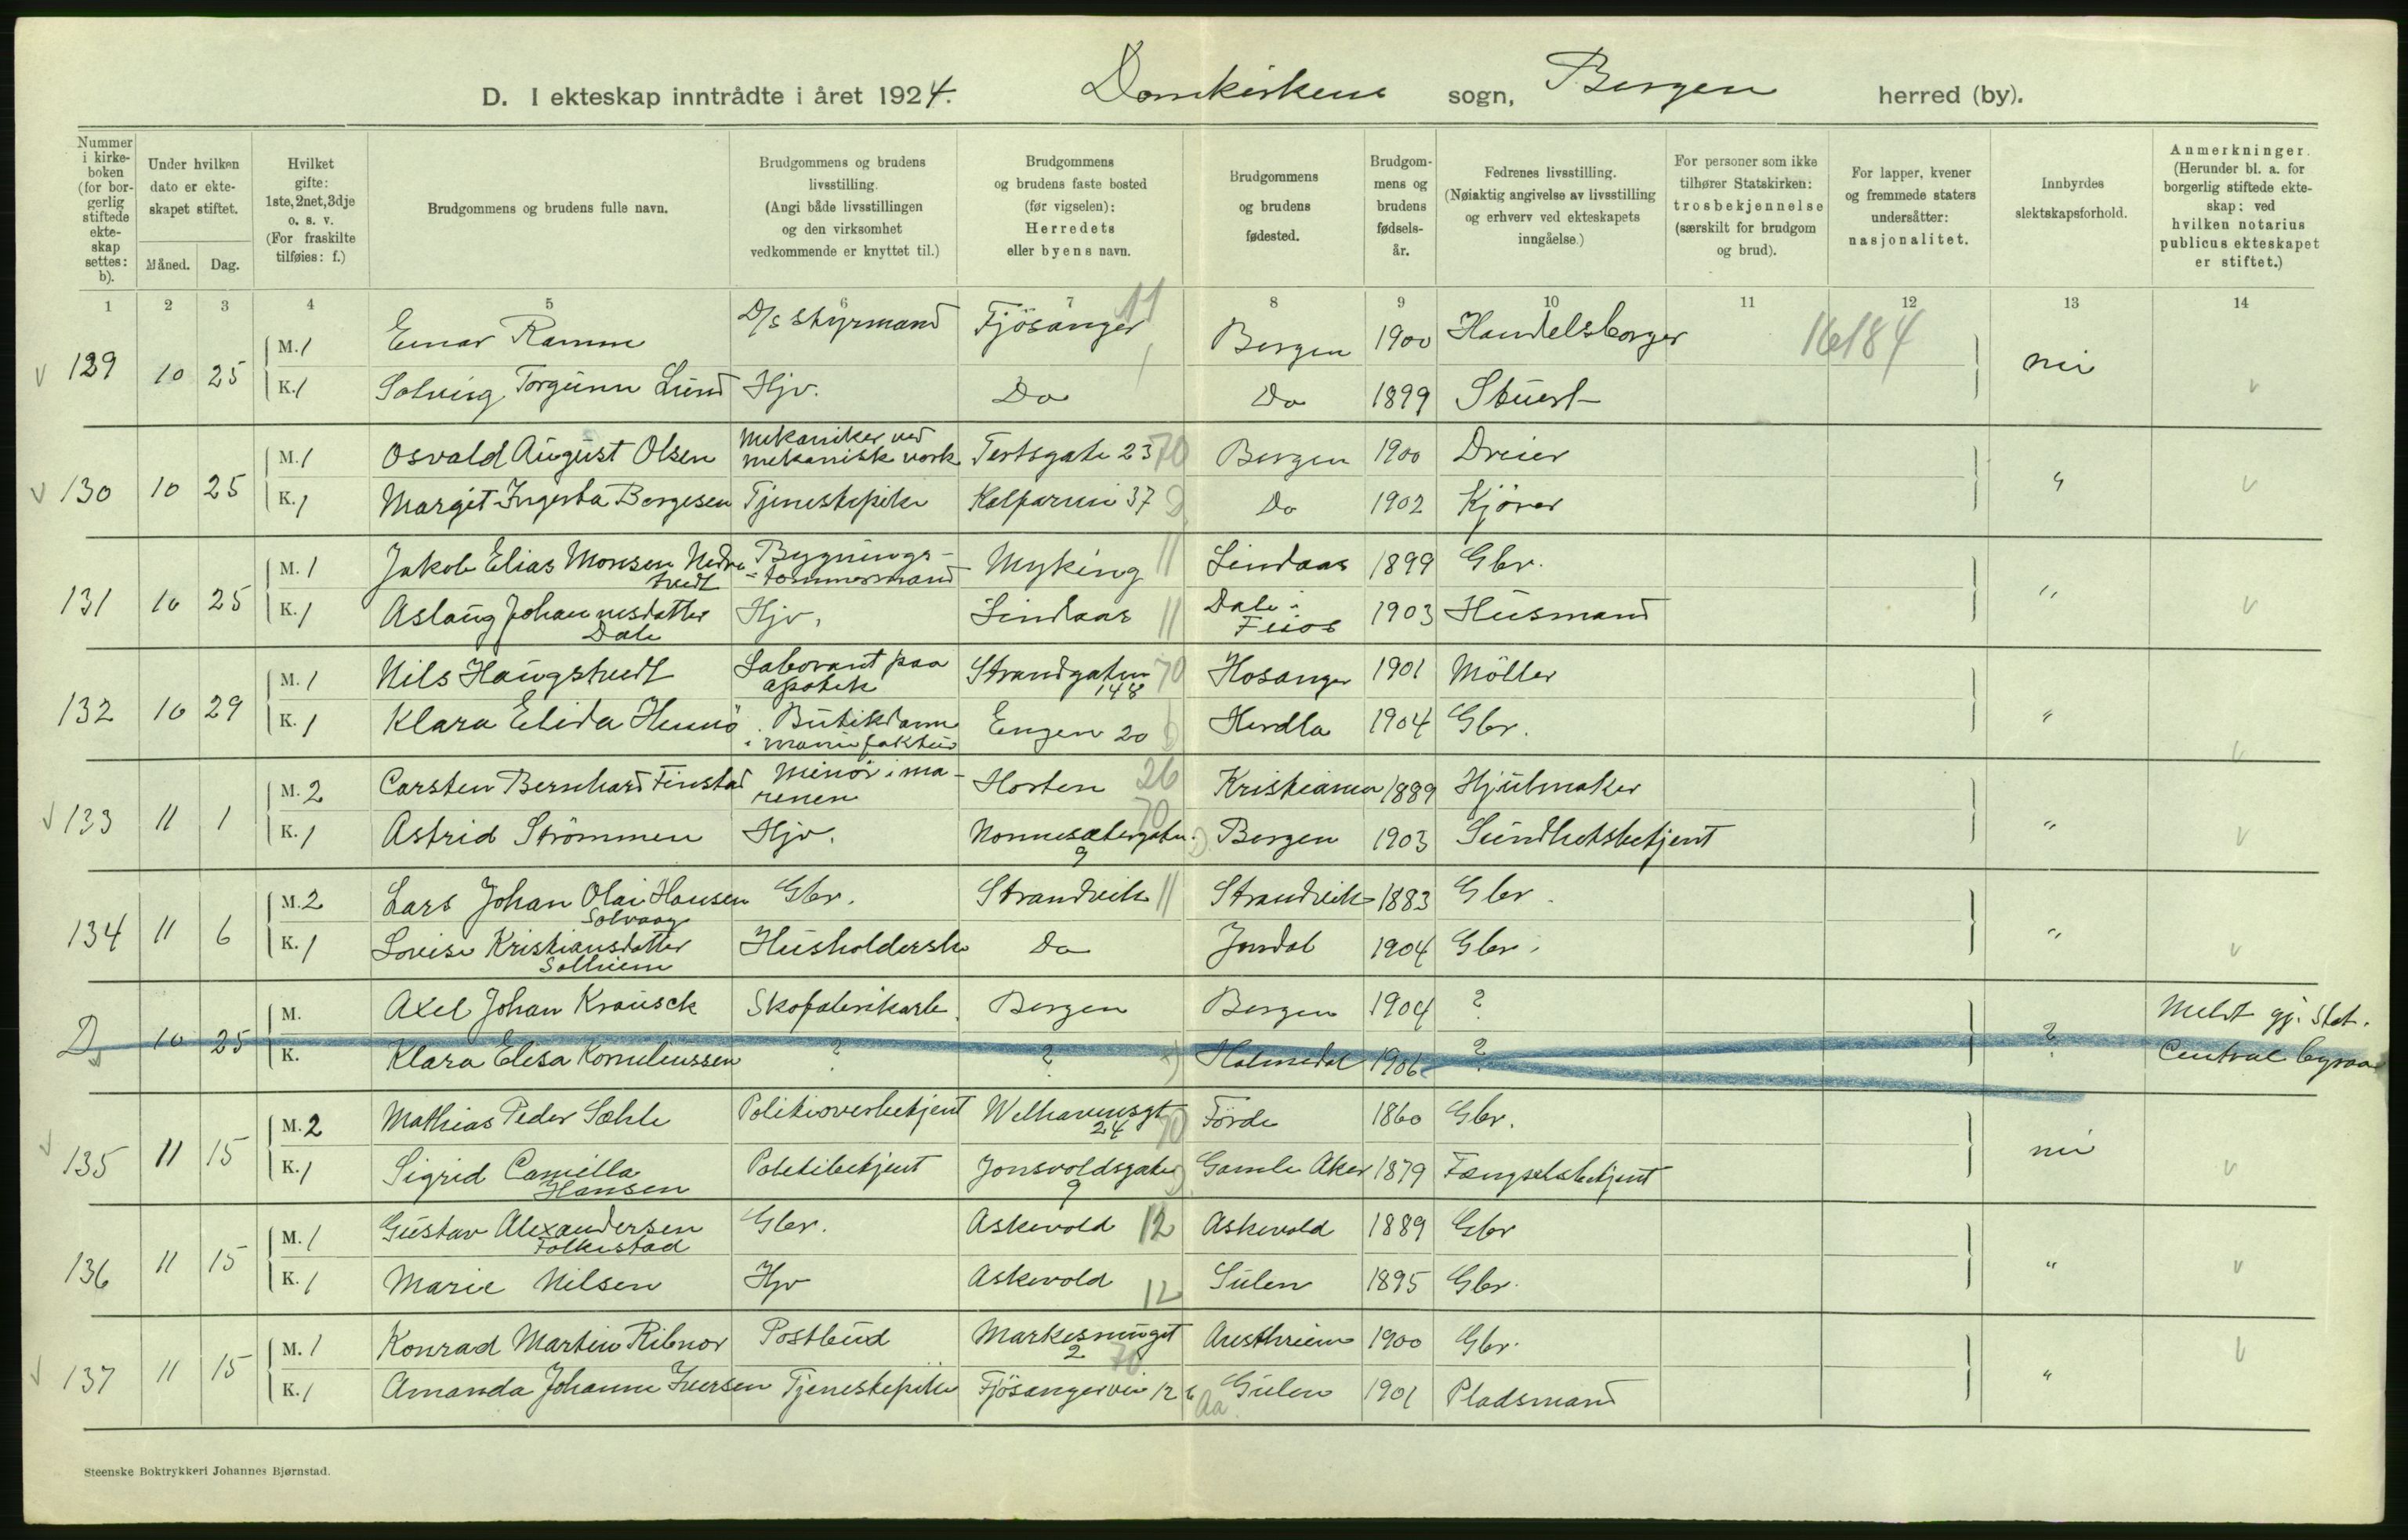 D. I ekteskap inntrådte i året 1924. Domkirkens sogn, Bergen herred (by).
Nummer i kirke-boken (for bor-gerlig stiftede ekte-skap settes: b).
Under hvilken dato er ekte-skapet stiftet.
Måned. Dag.
Hvilket gifte: 1ste, 2net, 3dje o. s. v. (For fraskilte tilføies: f.)
Brudgommens og brudens fulle navn.
Brudgommens og brudens livsstilling. (Angi både livsstillingen og den virksomhet vedkommende er knyttet til.)
Brudgommens og brudens faste bosted (før vigselen): Herredets eller byens navn.
Brudgommens og brudens fødested.
Brudgom-mens og brudens fødsels-år.
Fedrenes livsstilling. (Nøiaktig angivelse av livsstilling og erhverv ved ekteskapets inngåelse.)
For personer som ikke tilhører Statskirken: trosbekjennelse (særskilt for brudgom og brud).
For lapper, kvener og fremmede staters undersåtter: nasjonalitet.
Innbyrdes slektskapsforhold.
Anmerkninger. (Herunder bl. a. for borgerlig stiftede ekte-skap: ved hvilken notarius publicus ekteskapet er stiftet.)
1 2 3 4 5 6 7 8 9 10 11 12 13 14
129 10 25 M. 1 Einar Ramm D/s styrmand Fjösanger 11 Bergen 1900 Handelsborger 16184 nei
K. 1 Solveig Torgunn Lund Hjv. Do Do 1899 Stuert
130 10 25 M. 1 Osvald August Olsen Mekaniker ved mekanisk verk Tertsgate 23 70 Bergen 1900 Dreier "
K. 1 Margit Ingerba Børgesen Tjenestepike Kalfarvei 37 Do 1902 Kjörer
131 10 25 M. 1 Jakob Elias Monsen Nedre Tvedt Bygnings-tømmermand Myking 11 Lindaas 1899 Gbr. "
K. 1 Aslaug Johannesdatter Dale Hjv. Lindaas 11 Dale i Feios 1903 Husmand
132 10 29 M. 1 Nils Haugstvedt Laborant paa apotek Strandgaten 148 70 Hosanger 1901 Möller "
K. 1 Klara Elida Hennö Butikdame i manufaktur Engen 20 Herdla 1904 Gbr.
133 11 1 M. 2 Carsten Bernhard Finstad Minör i marenen Horten 26 Kristiania 1889 Hjulmaker "
K. 1 Astrid Strömmen Hjv. Nonnesætergaten 9 70 Bergen 1903 Sundhetsbetjent
134 11 6 M. 2 Lars Johan Olai Hansen Solvaag Gbr. Strandvik 11 Strandvik 1883 Gbr. "
K. 1 Lovise Kristiansdatter Solheim Husholderske Do Jondal 1904 Gbr.
D 10 25 M. Axel Johan Krausck Skofabrikarb. Bergen Bergen 1904 ? ? Meldt gj. Stat.
K. Klara Elisa Korneliussen ? ? Holmedal 1906 ? Central byraa
135 11 15 M. 2 Mathias Peder Sæhle Politioverbetjent Welhavensgt 24 70 Förde 1860 Gbr. nei
K. 1 Sigrid Camilla Hansen Politibetjent Jonsvoldsgaten 9 Gamle Aker 1879 Fængselsbetjent
136 11 15 M. 1 Gustav Alexandersen Folkestad Gbr. Askevold 12 Askevold 1889 Gbr "
K. 1 Marie Nilsen Hjv Askevold 12 Sulen 1895 Gbr.
137 11 15 M. 1 Konrad Martin Ribnor Postbud Markesmuget 2 70 Austhreim 1900 Gbr. "
K. 1 Amanda Johanne Iversen Tjenestepike Fjösangervei 126 Aa Gulen 1901 Pladsmand
Steenske Boktrykkeri Johannes Bjørnstad.